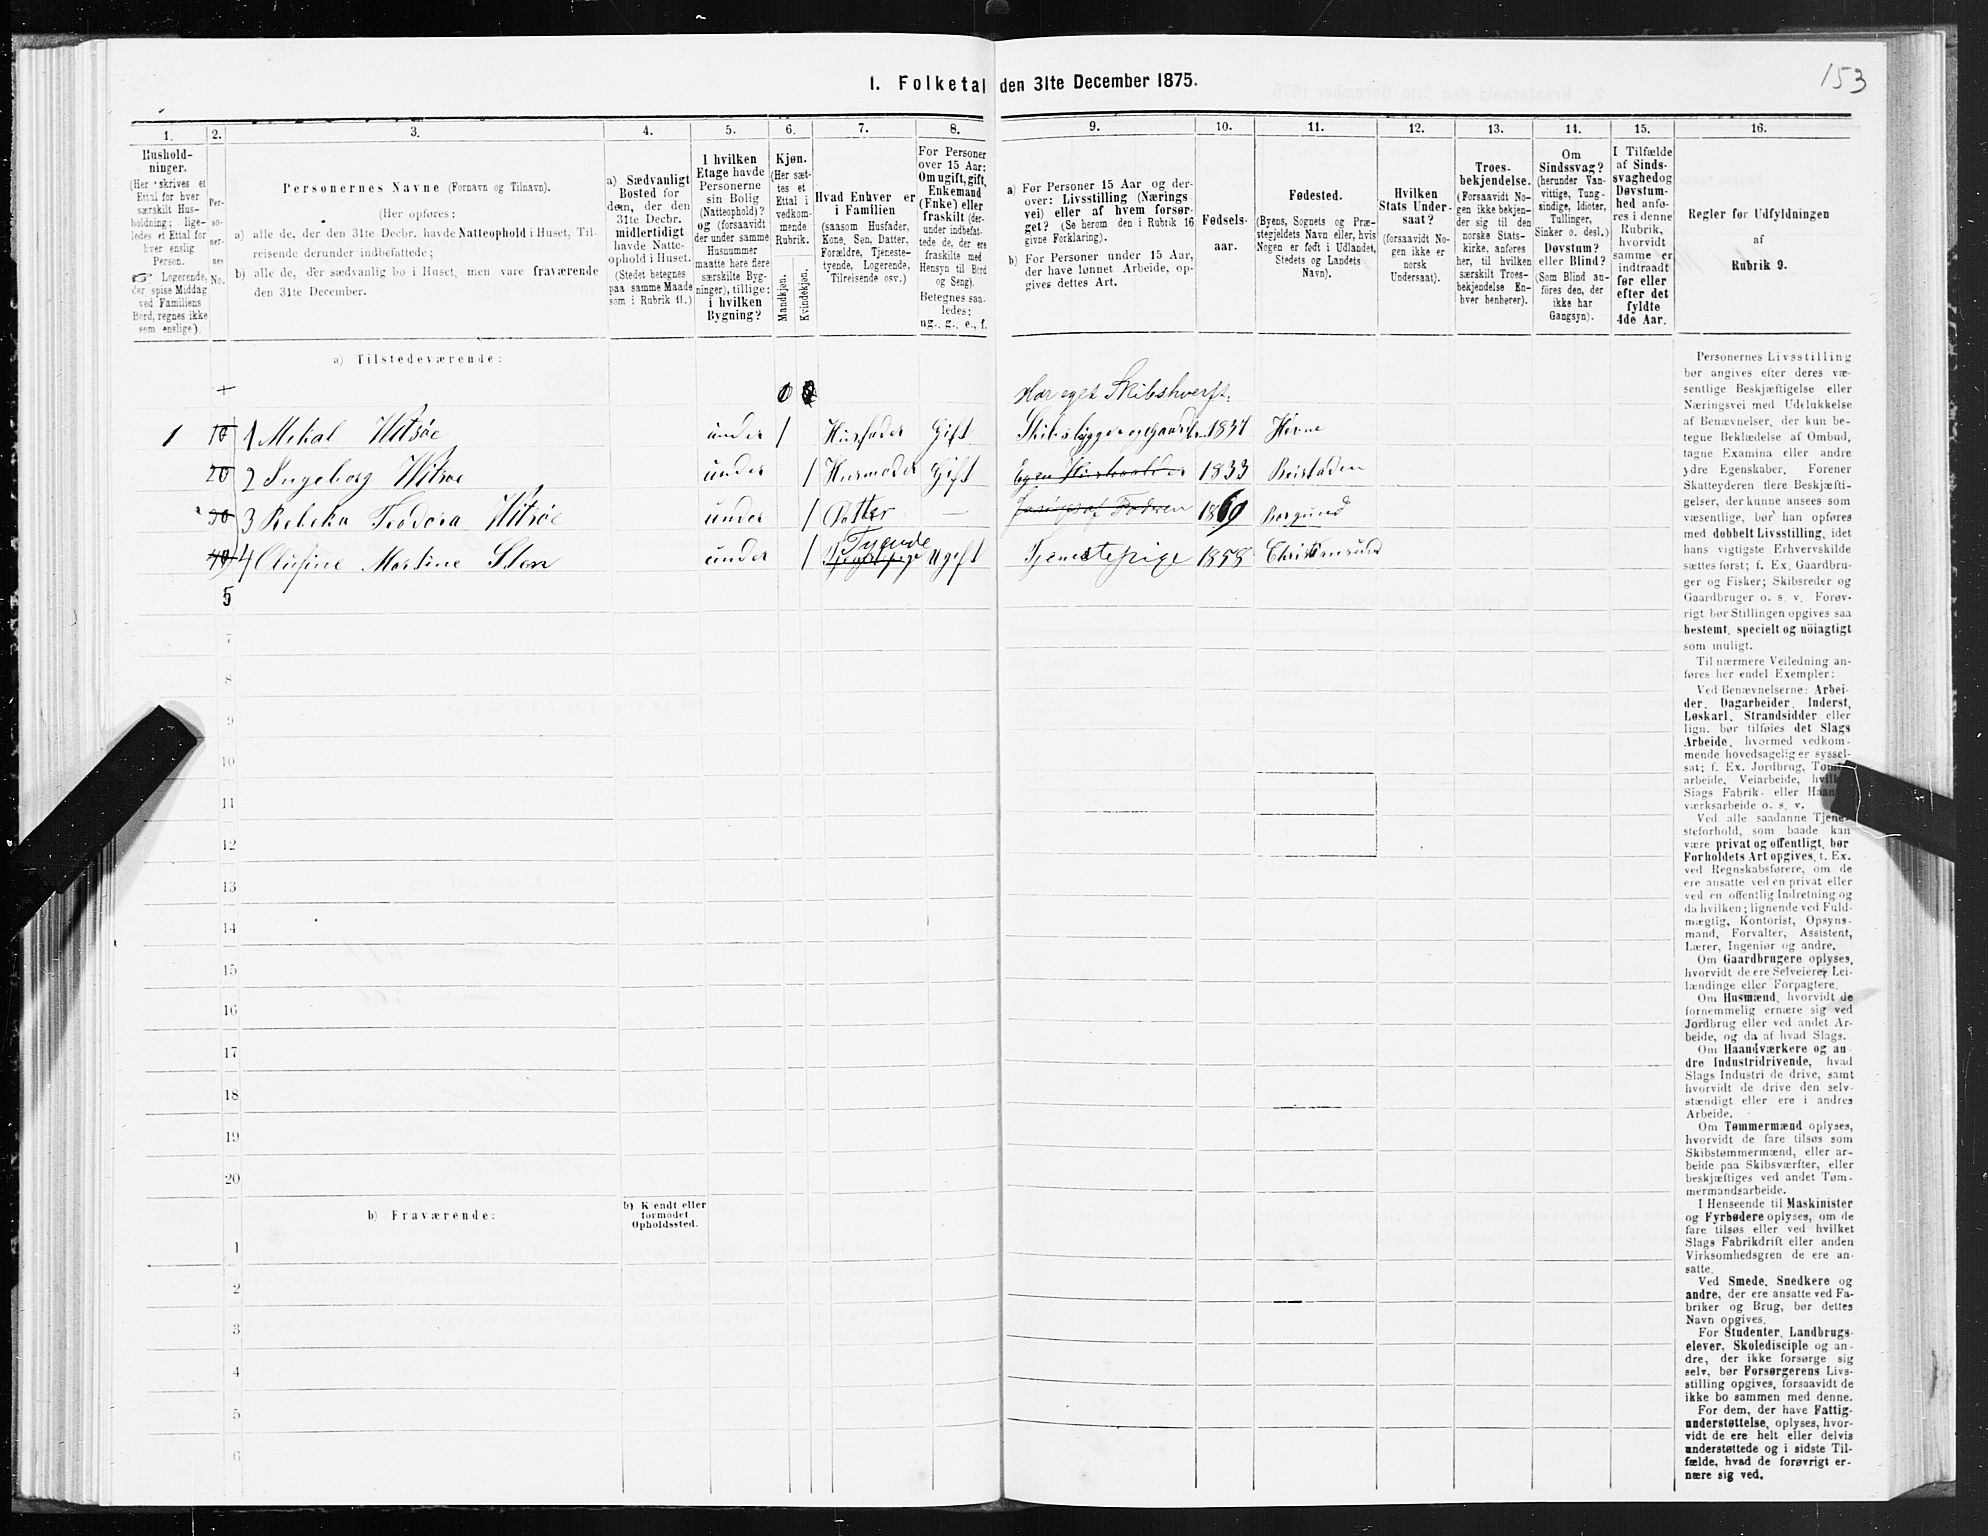 153
I. Folketal den 31te December 1875.
1. 2. 3. 4. 5. 6. 7. 8. 9. 10. 11. 12. 13. 14. 15. 16.
Hushold-
ninger.
(Her skrives et
Ettal for hver
særskilt Hus-
holdning; lige-
ledes et Ettal for
hver enslig
Person.
☞ Logerende,
der spise Middag
ved Familiens
Bord, regnes ikke
som enslige).
Per-
so-
ner-
nes
No.
Personernes Navne (Fornavn og Tilnavn).
(Her opføres:
a) alle de, der den 31te Decbr. havde Natteophold i Huset, Til-
reisende derunder indbefattede;
b) alle de, der sædvanlig bo i Huset, men vare fraværende
den 31te December.
a) Sædvanligt
Bosted for
dem, der den
31te Decbr.
midlertidigt
havde Natte-
ophold i Huset.
(Stedet betegnes
paa samme Maade
som i Rubrik 11.)
I hvilken
Etage havde
Personerne
sin Bolig
(Natteophold)?
og (forsaavidt
der under samme
Husnummer
maatte høre flere
særskilte Byg-
ninger), tillige:
i hvilken
Bygning?
Kjøn.
(Her sæt-
tes et
Ettal i
vedkom-
mende
Rubrik.
Mandkjøn.
Kvindekjøn.
Hvad Enhver er
i Familien
(saasom Husfader,
Kone, Søn, Datter,
Forældre, Tjeneste-
tyende, Logerende,
Tilreisende osv.)
For Personer
over 15 Aar:
Om ugift, gift,
Enkemand
(Enke) eller
fraskilt (der-
under indbefat-
tede de, der ere
fraskilte med
Hensyn til Bord
og Seng).
Betegnes saa-
ledes:
ug., g., e., f.
a) For Personer 15 Aar og der-
over: Livsstilling (Nærings
vei) eller af hvem forsør-
get? (Se herom den i Rubrik 16
givne Forklaring).
b) For Personer under 15 Aar,
der have lønnet Arbeide, op-
gives dettes Art.
Fødsels-
aar.
Fødested.
(Byens, Sognets og Præ-
stegjeldets Navn eller, hvis
Nogen er født i Udlandet,
Stedets og Landets
Navn).
Hvilken
Stats Under-
saat?
(forsaavidt No-
gen ikke er
norsk
Undersaat).
Troes-
bekjendelse.
(Forsaavidt No-
gen ikke bekjen-
der sig til den
norske Stats-
kirke, anføres
her, til hvilken
særskilt Troes-
bekjendelse En-
hver henhører).
Om
Sindssvag?
(herunder Van-
vittige, Tung-
sindige, Idioter,
Tullinger,
Sinker o. desl.)
Døvstum?
eller Blind?
(Som Blind an-
føres den, der
ikke har
Gangsyn).
I Tilfælde
af Sinds-
svaghed og
Døvstum-
hed anfø-
res i denne
Rubrik,
hvorvidt
samme er
indtraadt
før eller
efter det
fyldte
4de Aar.
Regler for Udfyldningen
af
Rubrik 9.
a) Tilstedeværende:
Har eget Skibshverft.
1 1 Mekal Hitsøe under 1 Husfader Gift 1834 Hevne
2 Ingeborg Hitsøe under 1 Husmoder Gift 1833 Beistaden
3 Rebeka Teodora Hitsøe under 1 Datter — 1869 Borgund
4 Olufine Martine Sten under 1 Tyende Ugift Tjenestepige 1858 Christiansund
5
7
8
9
10
11
12
13
14
15
16
17
18
19
20
b) Fraværende:
b) Kjendt eller
formodet
Opholdssted.
1
2
3
4
5
6
Personernes Livsstilling
bør angives efter deres væ-
sentlige Beskjæftigelse eller
Næringsvei med Udelukkelse
af Benævnelser, der kun be-
tegne Beklædelse af Ombud,
tagne Examina eller andre
ydre Egenskaber. Forener
Skatteyderen flere Beskjæfti-
gelser, der kunne ansees som
væsentlige, bør han opføres
med dobbelt Livsstilling, idet
hans vigtigste Erhvervskilde
sættes først; f. Ex. Gaardbru-
ger og Fisker; Skibsreder og
Gaardbruger o. s. v. Forøv-
rigt bør Stillingen opgives saa
bestemt, specielt og nöiagtigt
som muligt.
Til nærmere Veiledning an-
føres her endel Exempler:
Ved Benævnelserne: Arbei-
der, Dagarbeider, Inderst,
Løskarl, Strandsidder eller
lign. bør tilføies det Slags
Arbeide, hvormed vedkom-
mende hovedsagelig er syssel-
sat; f. Ex. Jordbrug,
arbeide, Veiarbeide,
Slags Fabrik- eller
værksarbeide o. s. v.
Ved alle saadanne Tjene-
steforhold, som baade kan
være privat og offentligt, bør
Forholdets Art opgives, t. Ex.
ved Regnskabsførere, om de
ere ansatte ved en privat eller
ved en offentlig Indretning og
da hvilken; lignende ved Fuld-
mægtig, Kontorist, Opsyns-
mand, Forvalter, Assistent,
Lærer, Ingeniør og andre.
Om Gaardbrugere oplyses,
hvorvidt de ere Selveiere, Lei-
lændinge eller Forpagtere.
Om Husmænd, hvorvidt de
fornemmelig ernære sig ved
Jordbrug eller ved andet Ar-
beide, og da af hvad Slags.
Om Haandværkere og an-
dre Industridrivende, hvad
Slags Industri de drive, samt
hvorvidt de drive den selv-
stændigt eller ere i andres
Arbeide.
Om Tømmermænd oplyses,
hvorvidt de fare tilsøs som
Skibstømmermænd, eller ar-
beide paa Skibsværfter, eller
beskjæftiges ved andet Tøm-
mermandsarbeide.
I Henseende til Maskinister
og Fyrbødere oplyses, om de
fare tilsøs eller ved hvilket
Slags Fabrikdrift eller anden
Virksomhedsgren de ere an-
satte.
Ved Smede, Snedkere og
andre, der ere ansatte ved Fa-
briker og Brug, bør dettes
Navn opgives.
For Studenter, Landbrugs-
elever, Skoledisciple og an-
dre, der ikke forsørge sig
selv, bør Forsørgerens Livs-
stilling opgives, forsaavidt de
ikke bo sammen med denne.
For dem, der have Fattig-
understøttelse, oplyses, hvor-
vidt de ere helt eller delvis
understøttede og i sidste Til-
fælde, hvad de forøvrigt er-
nære sig ved.